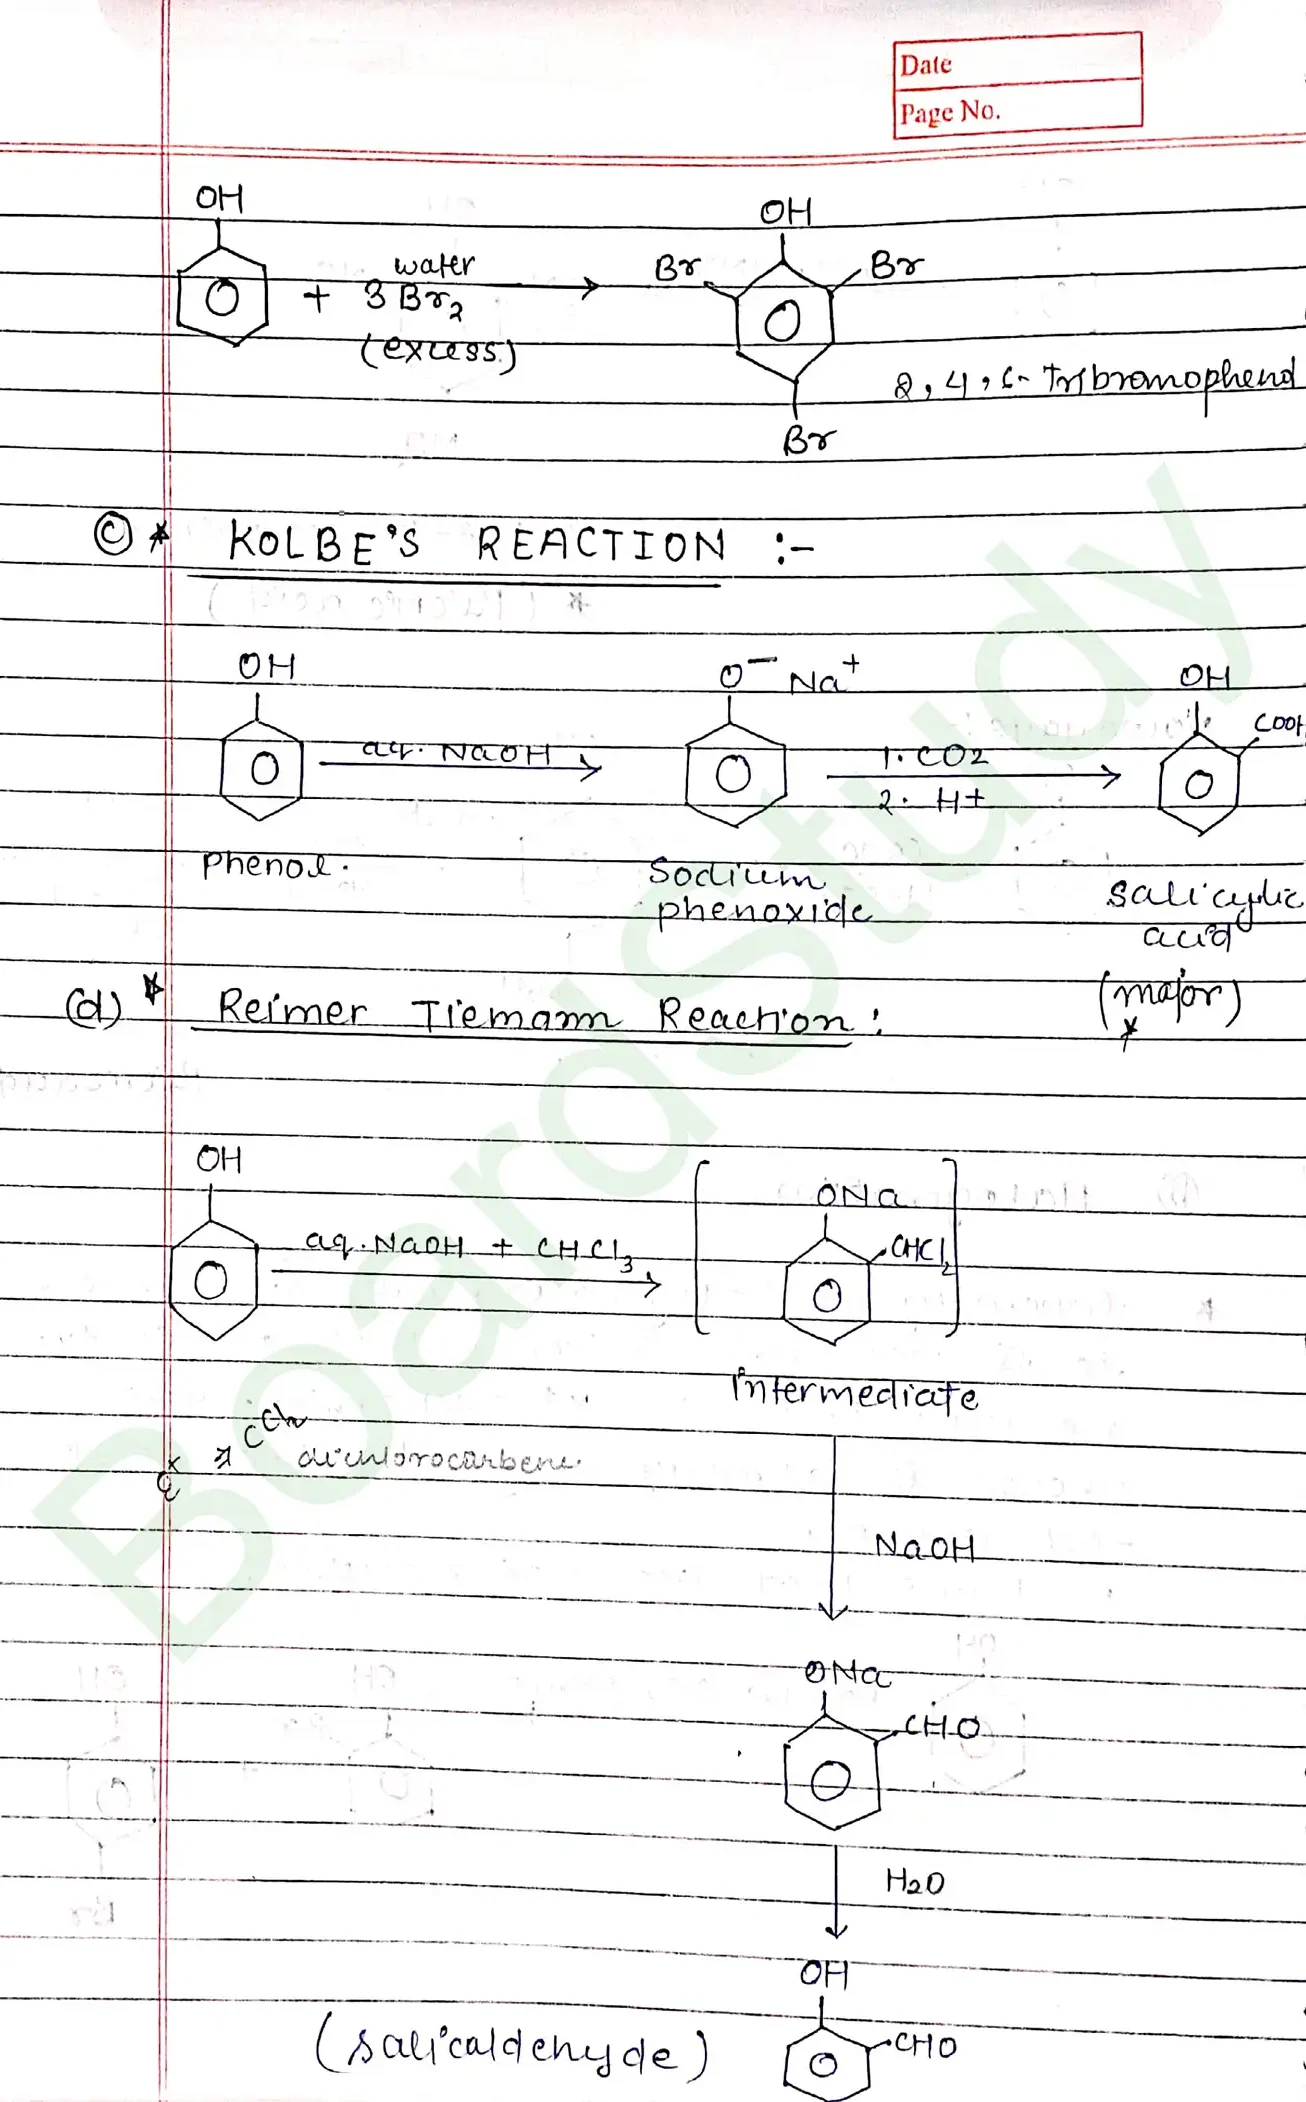 Date
Page No.
OH
OH
water
Br
Br
+ 3 Br2
(excess)
2, 4, 6- Tribromophenol
Br
© * KOLBE'S REACTION :-
OH
O⁻ Na⁺
OH
COOH
aq. NaOH
1. CO2
2. H+
Phenol.
Sodium
phenoxide
Salicylic
acid
(major)
(d) * Reimer Tiemann Reaction :
OH
ONa
aq. NaOH + CHCl3
CHCl2
Intermediate
CCl2
dichlorocarbene.
NaOH
ONa
CHO
H2O
OH
CHO
(salicaldehyde)
BoardStudy